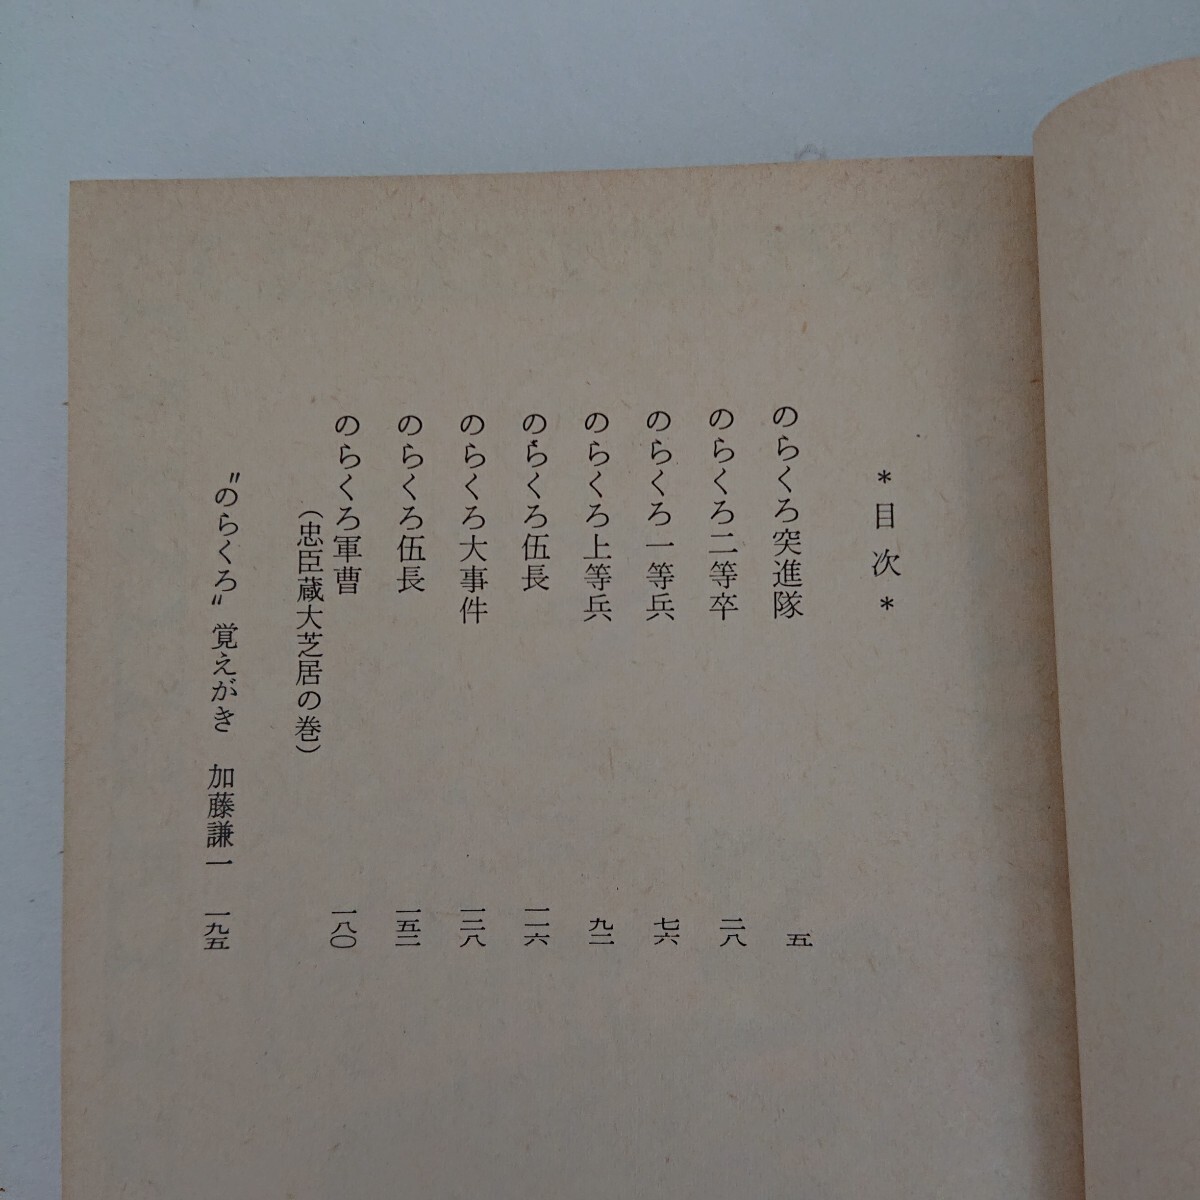 ＊目次＊
のらくろ突進隊 五
のらくろ二等卒 二八
のらくろ一等兵 七六
のらくろ上等兵 九二
のらくろ伍長 一一六
のらくろ大事件 一三八
のらくろ伍長 一五二
のらくろ軍曹 一八〇
（忠臣蔵大芝居の巻）
〝のらくろ〟覚えがき 加藤謙一 一九五